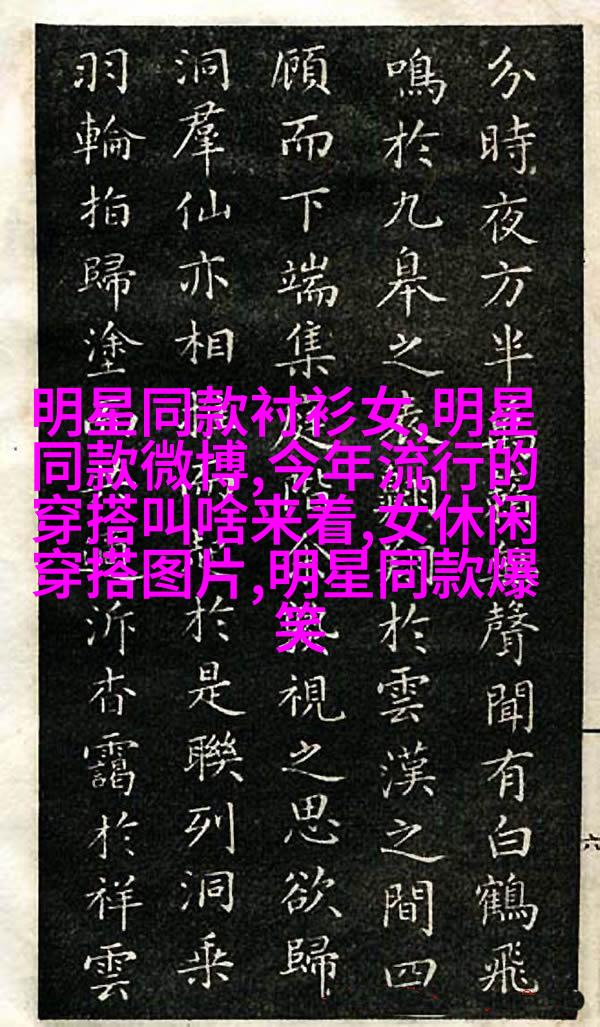 分時夜方半聲聞有白鶴飛
鳴於九皋之於雲漢之間四
顧而下端集庭視之思欲歸
洞羣仙亦相於是聯列洞乘
羽輪拍歸塗泝杳靄於祥雲
六
明星同款衬衫女,明星
同款微博,今年流行的
穿搭叫啥来着,女休闲
穿搭图片,明星同款爆
笑